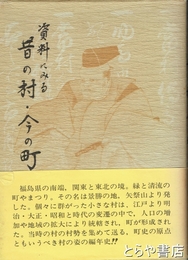 資料にみる
昔の村・今の町
福島県の南端、関東と東北の境。緑と清流の
町やまつり。その名は景勝の地、矢祭山より発
した。個々に群がった小さな村は、江戸より明
治・大正・昭和と時代の変遷の中で、人口の増
加や地域の拡大により統轄され、町が形成され
た。当時の村の村勢を集めて送る、町史の原点
ともいうべき村の姿の編年史!!
とらや書店